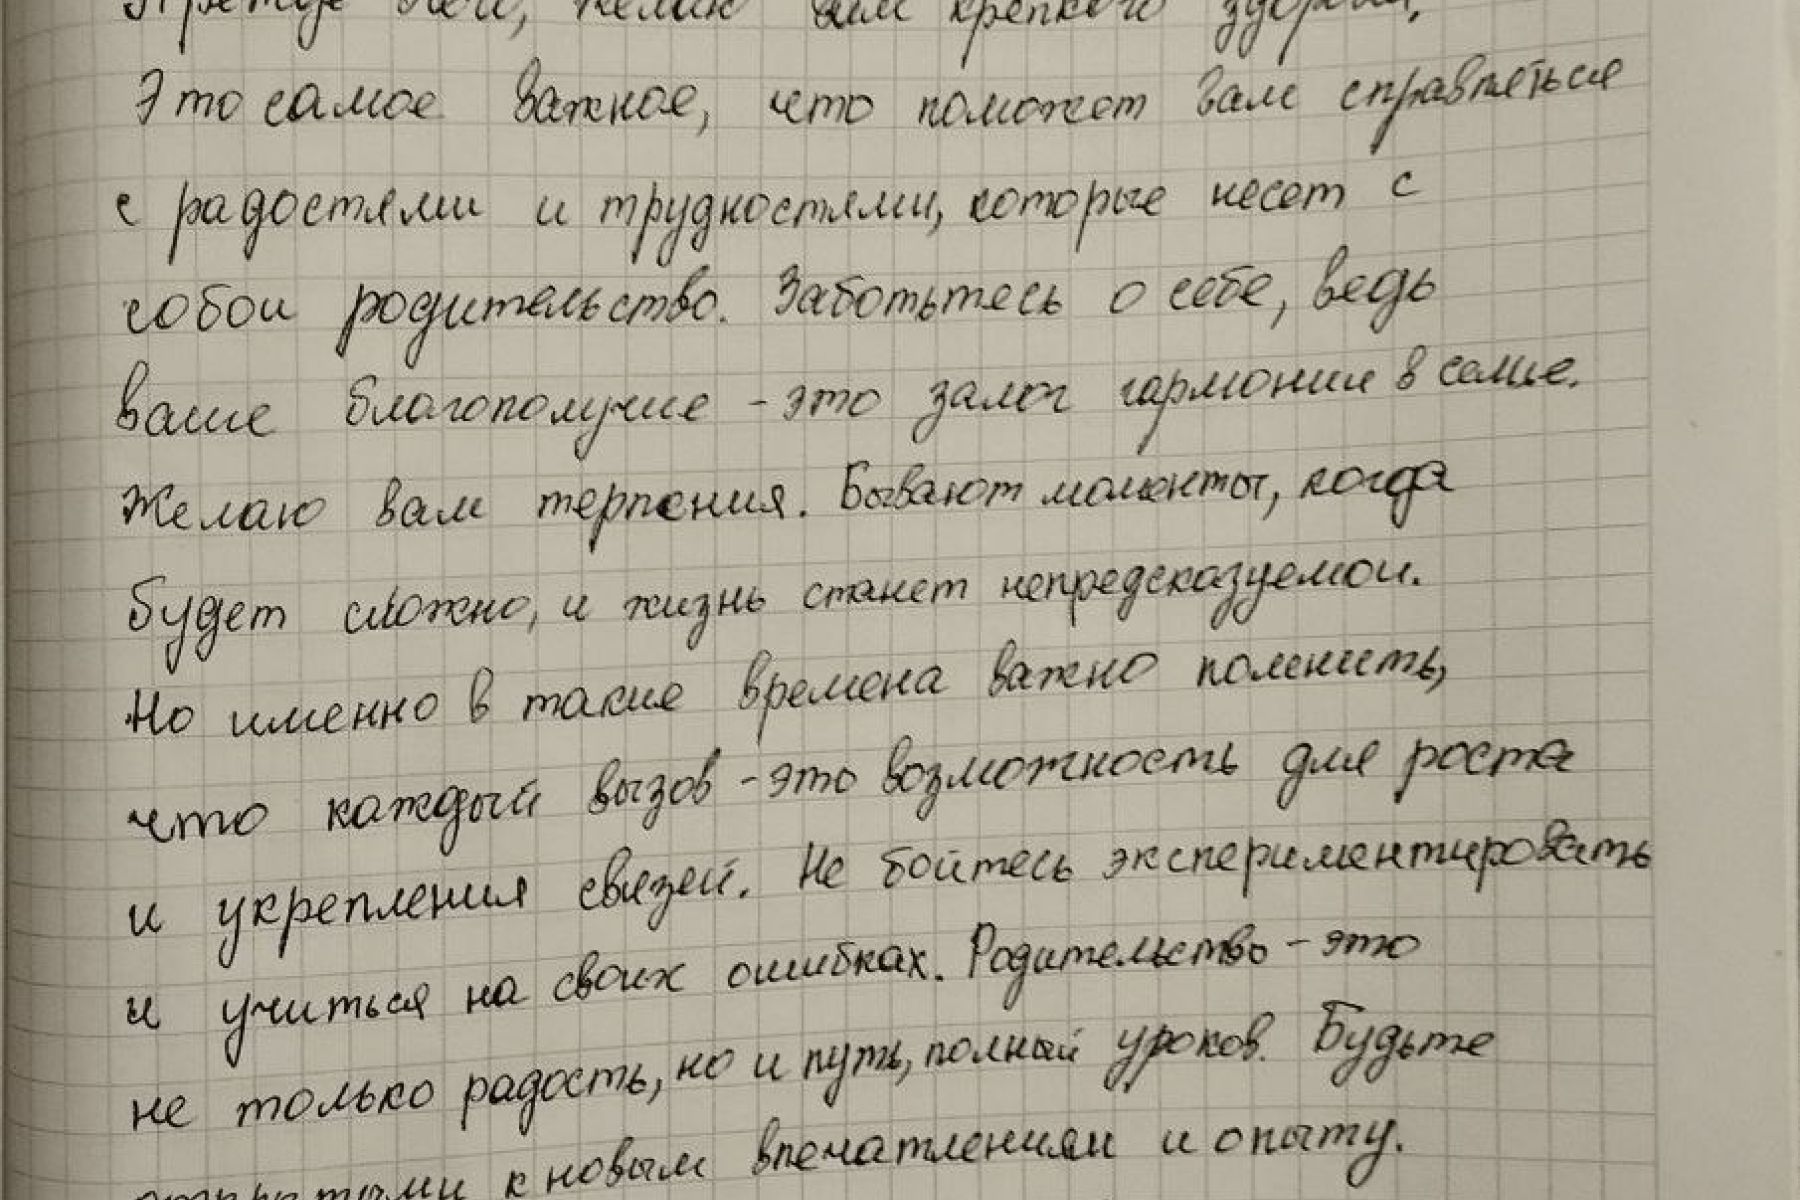 Прежде всего, желаю вам крепкого здоровья.
Это самое важное, что поможет вам справляться
с радостями и трудностями, которые несет с
собой родительство. Заботьтесь о себе, ведь
ваше благополучие - это залог гармонии в семье.
Желаю вам терпения. Бывают моменты, когда
будет сложно, и жизнь станет непредсказуемой.
Но именно в такие времена важно помнить,
что каждый вызов - это возможность для роста
и укрепления связей. Не бойтесь экспериментировать
и учиться на своих ошибках. Родительство - это
не только радость, но и путь, полный уроков. Будьте
открытыми к новым впечатлениям и опыту.